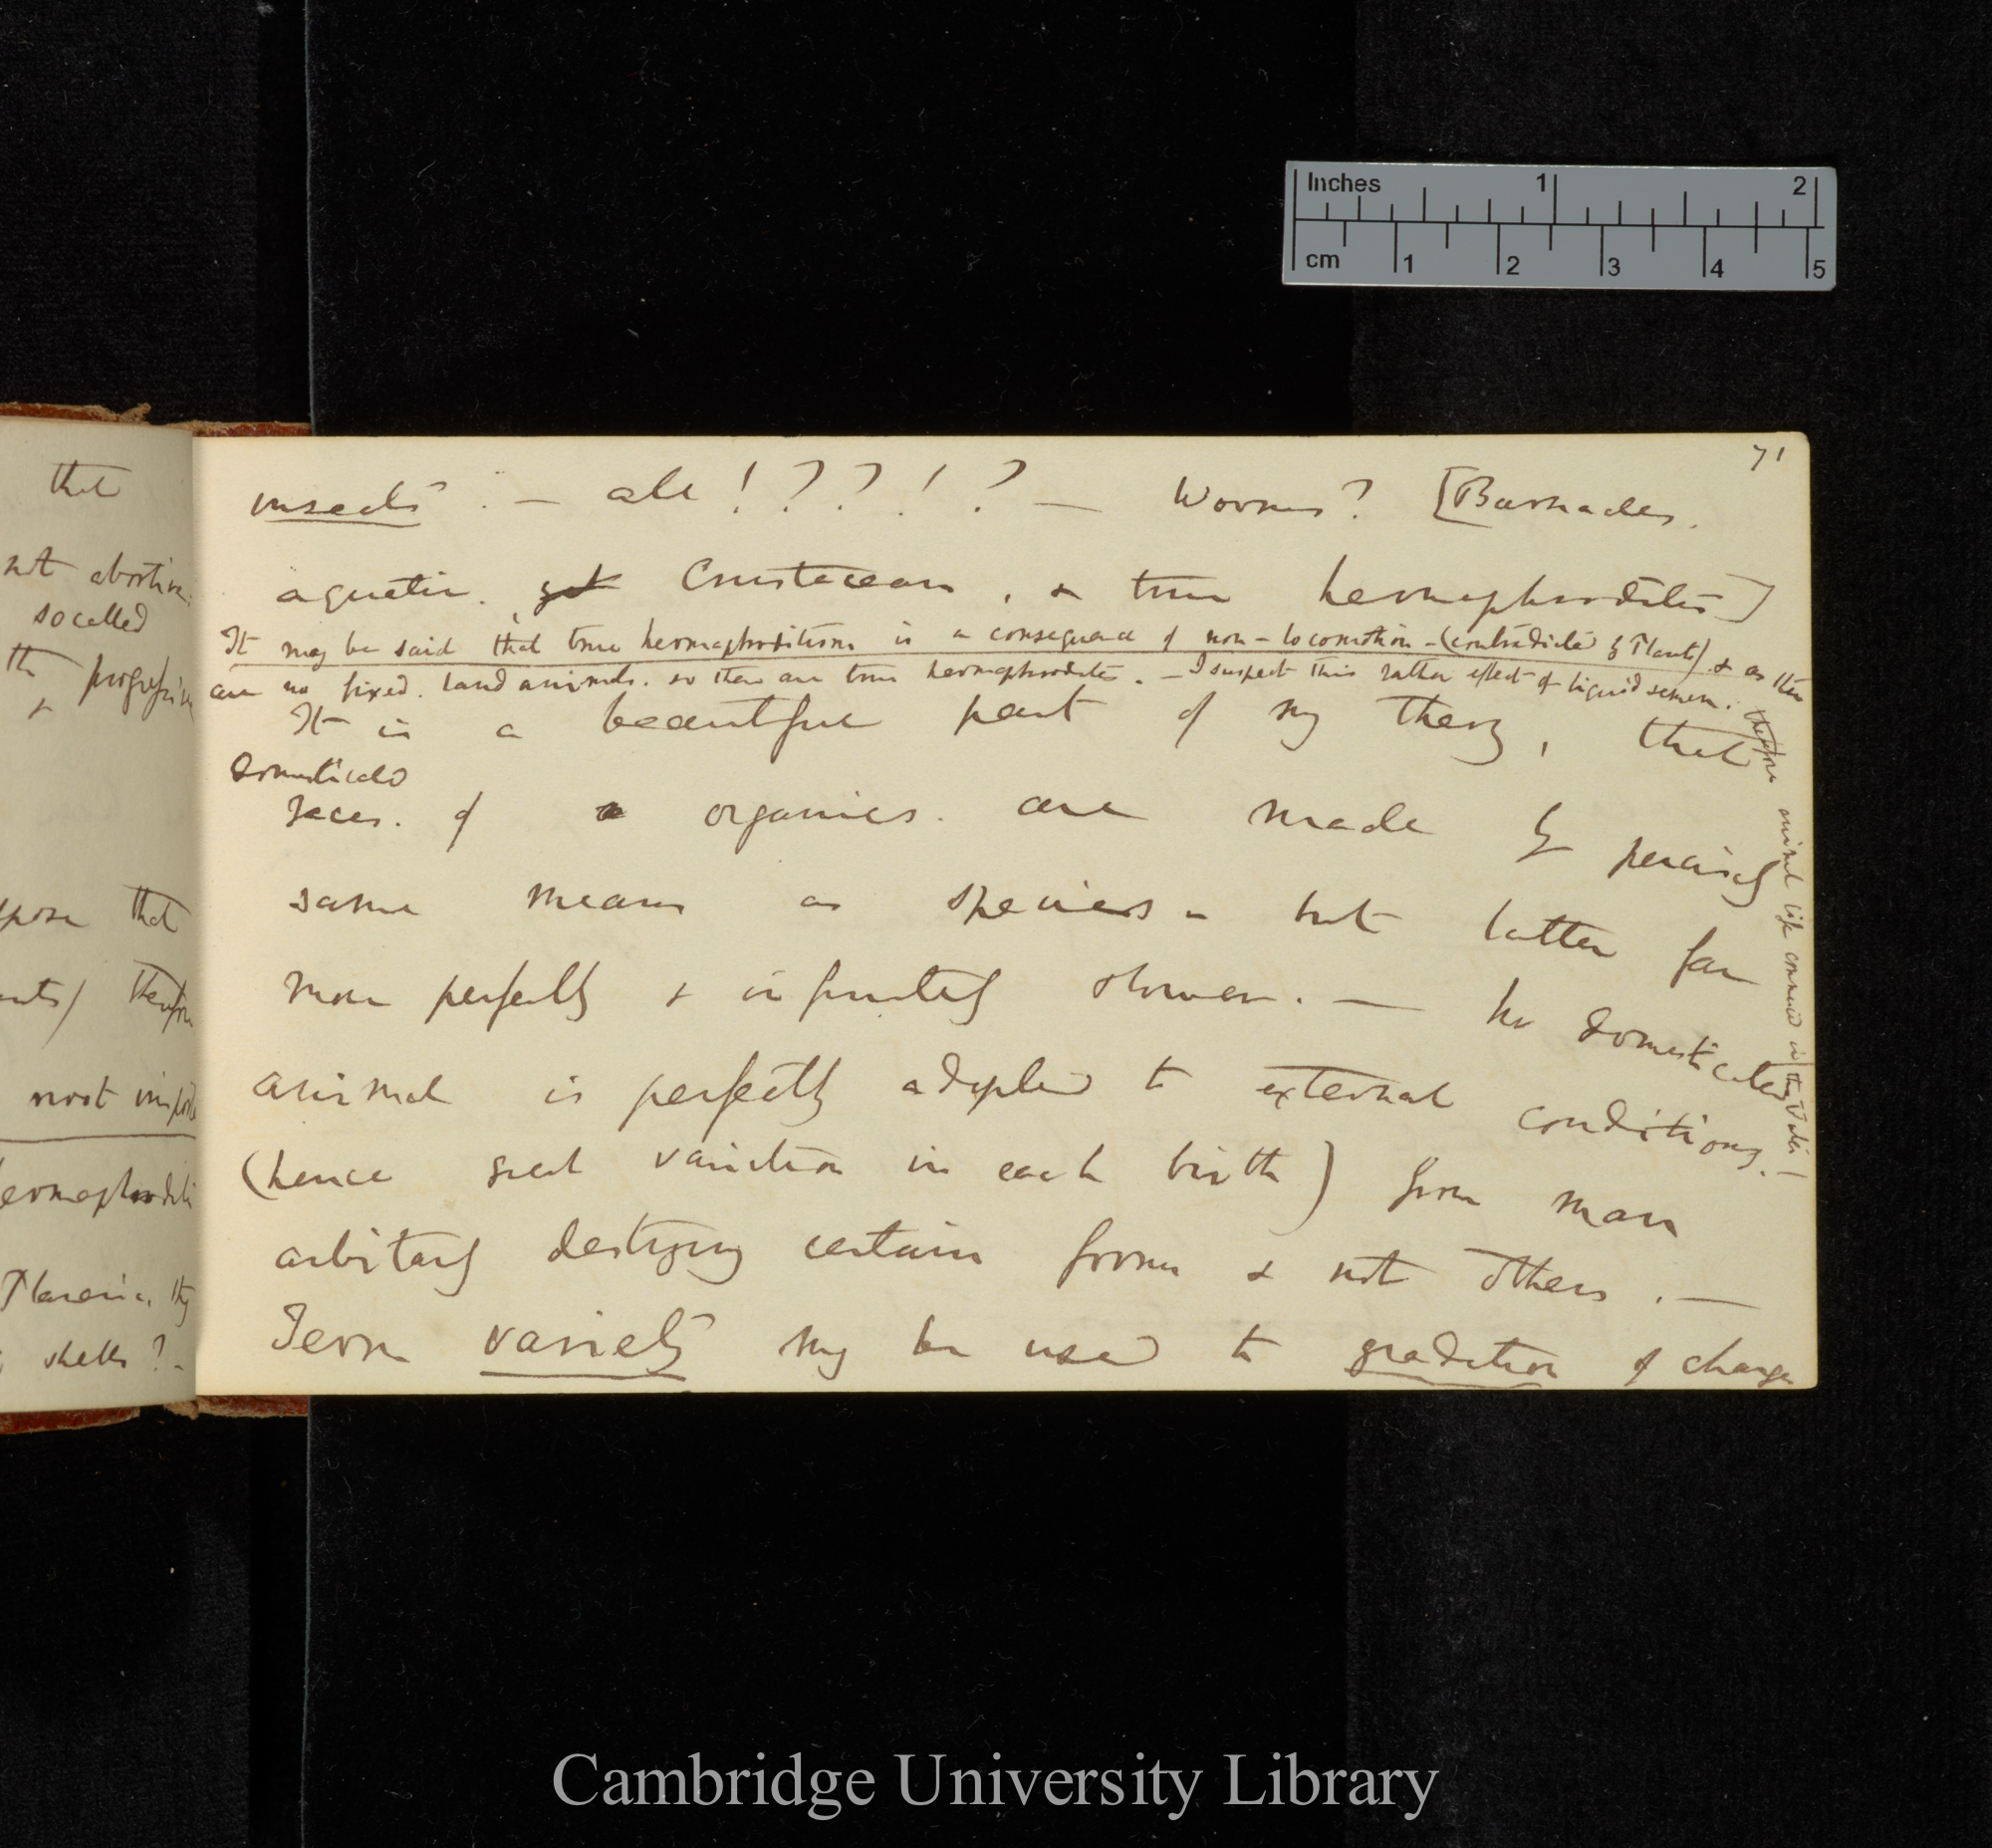 Inches 1 2
cm 1 2 3 4 5
that
not abortive
socalled
the progressive
&
that
therefore
most
Planaria, they
shells? -
71
insects . — all ! ? ? ! ? — Worms? [Barnacles.
aquatic. yet Crustacean , & true hermaphrodites]
It may be said that true hermaphroditism is a consequence of non-locomotion - (contradicted by Plants) & as there
are no fixed. land animals. so there are true hermaphrodites. — I suspect this rather effect of liquid semen. therefore animal life commenced in the Water —
It is a beautiful part of my theory, that
domesticated
races. of a organics. are made by precisely
same means as species - but latter far
more perfectly & infinitely slower. — No domesticated
animal is perfectly adapted to external conditions. —
(hence great variation in each birth) from man
arbitrarily destroying certain forms & not others. —
Term variety may be used to gradation of change
Cambridge University Library